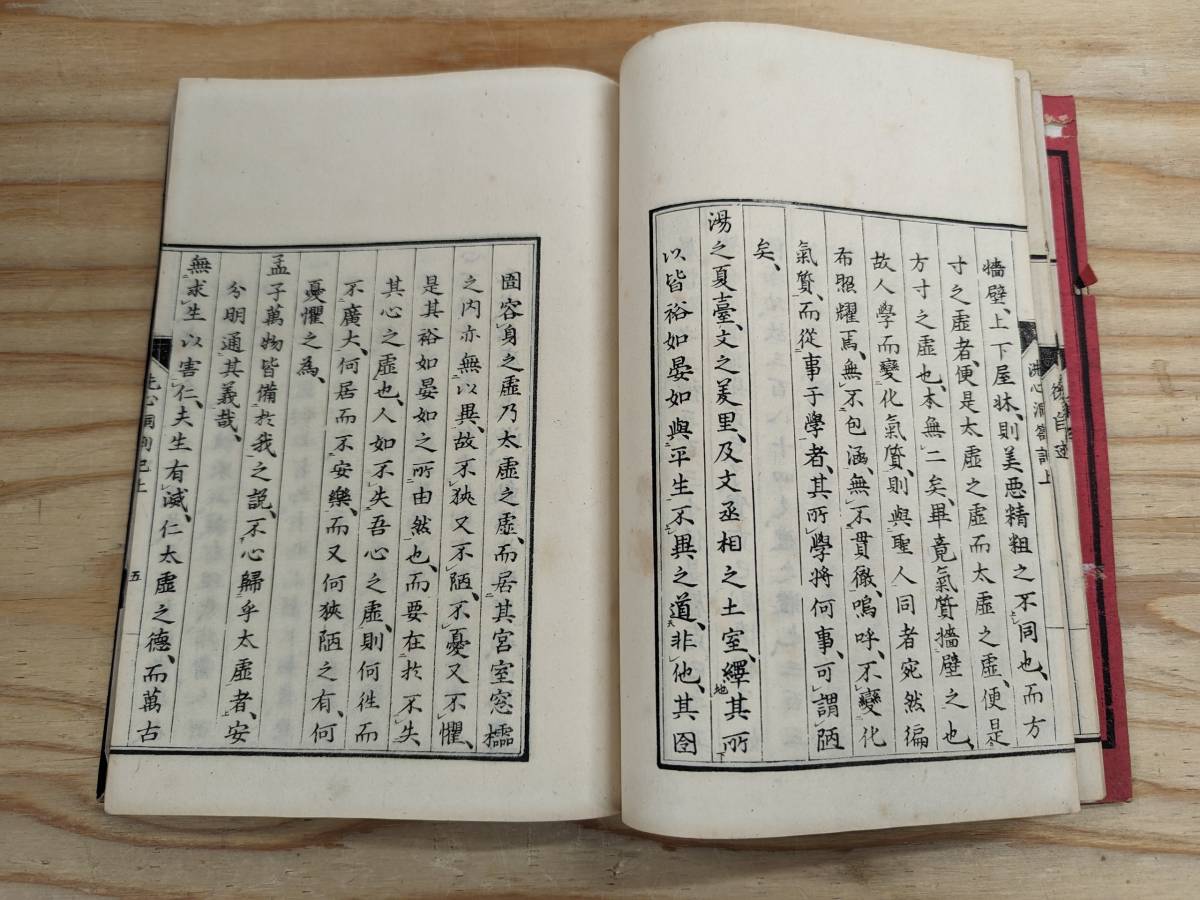 後自述
洗心洞劄記上
牆壁、上下屋牀、則美惡精粗之不同也、而方
寸之虛者、便是太虛之虛、而太虛之虛、便是
方寸之虛也、本無二矣、畢竟氣質牆壁之也、
故人學而變化氣質、則與聖人同者宛然徧
布照耀焉、無不包涵、無不貫徹、嗚呼、不變化
氣質、而從事于學者、其所學將何事、可謂陋
矣、
湯之夏臺、文之羑里、及文丞相之土室、繹其所
以皆裕如晏如與平生不異之道、非他、其囹
圄容身之虛乃太虛之虛、而居其宮室窓櫺
之內亦無以異、故不狹又不陋、不憂又不懼、
是其裕如晏如之所由然也、而要在於不失
其心之虛也、人如不失吾心之虛、則何徃而
不廣大、何居而不安樂、而又何狹陋之有、何
憂懼之為、
孟子萬物皆備於我之說、不心歸乎太虛者、安
分明通其義哉、
無求生以害仁、夫生有滅、仁太虛之德、而萬古
五